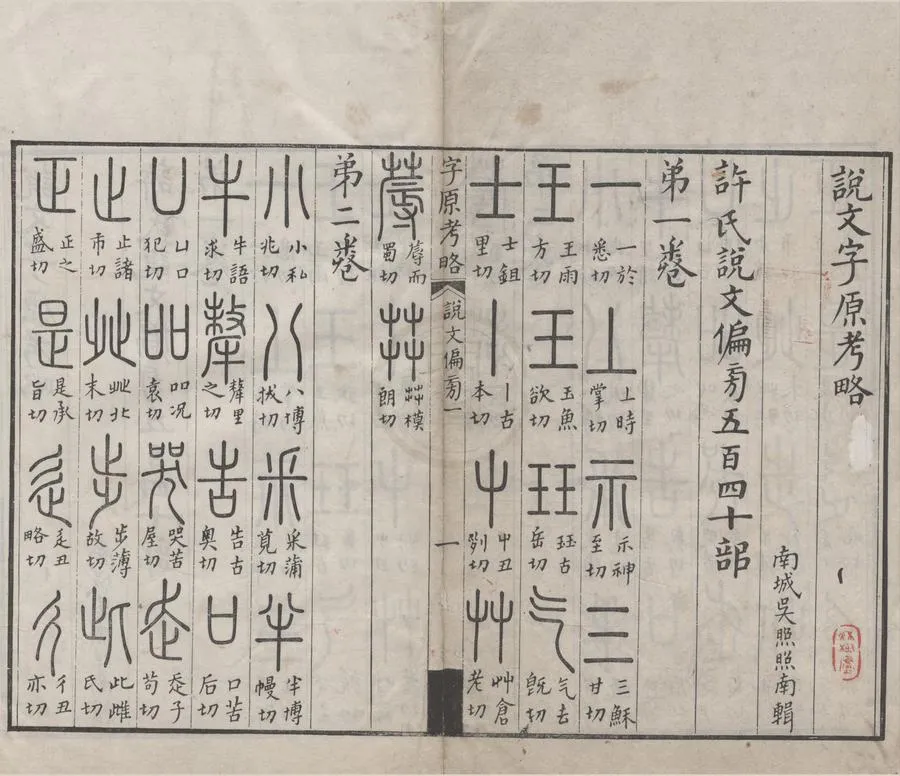 說文字原考略
南城吳照照南輯
許氏說文偏㫄五百四十部
弟一卷
一 一於悉切 丄 丄時掌切 示 示神至切 三 三穌甘切
王 王雨方切 玉 玉魚欲切 玨 玨古岳切 气 气去旣切
士 士鉏里切 丨 丨古本切 屮 屮丑列切 艸 艸倉老切
字原考略 說文偏㫄一 一
蓐 蓐而蜀切 茻 茻模朗切
弟二卷
小 小私兆切 八 八博拔切 釆 釆蒲莧切 半 半博幔切
牛 牛語求切 犛 犛里之切 告 告古奧切 口 口苦后切
凵 凵口犯切 吅 吅况袁切 哭 哭苦屋切 走 走子苟切
止 止諸市切 癶 癶北末切 步 步薄故切 此 此雌氏切
正 正之盛切 是 是承旨切 辵 辵丑略切 彳 彳丑亦切